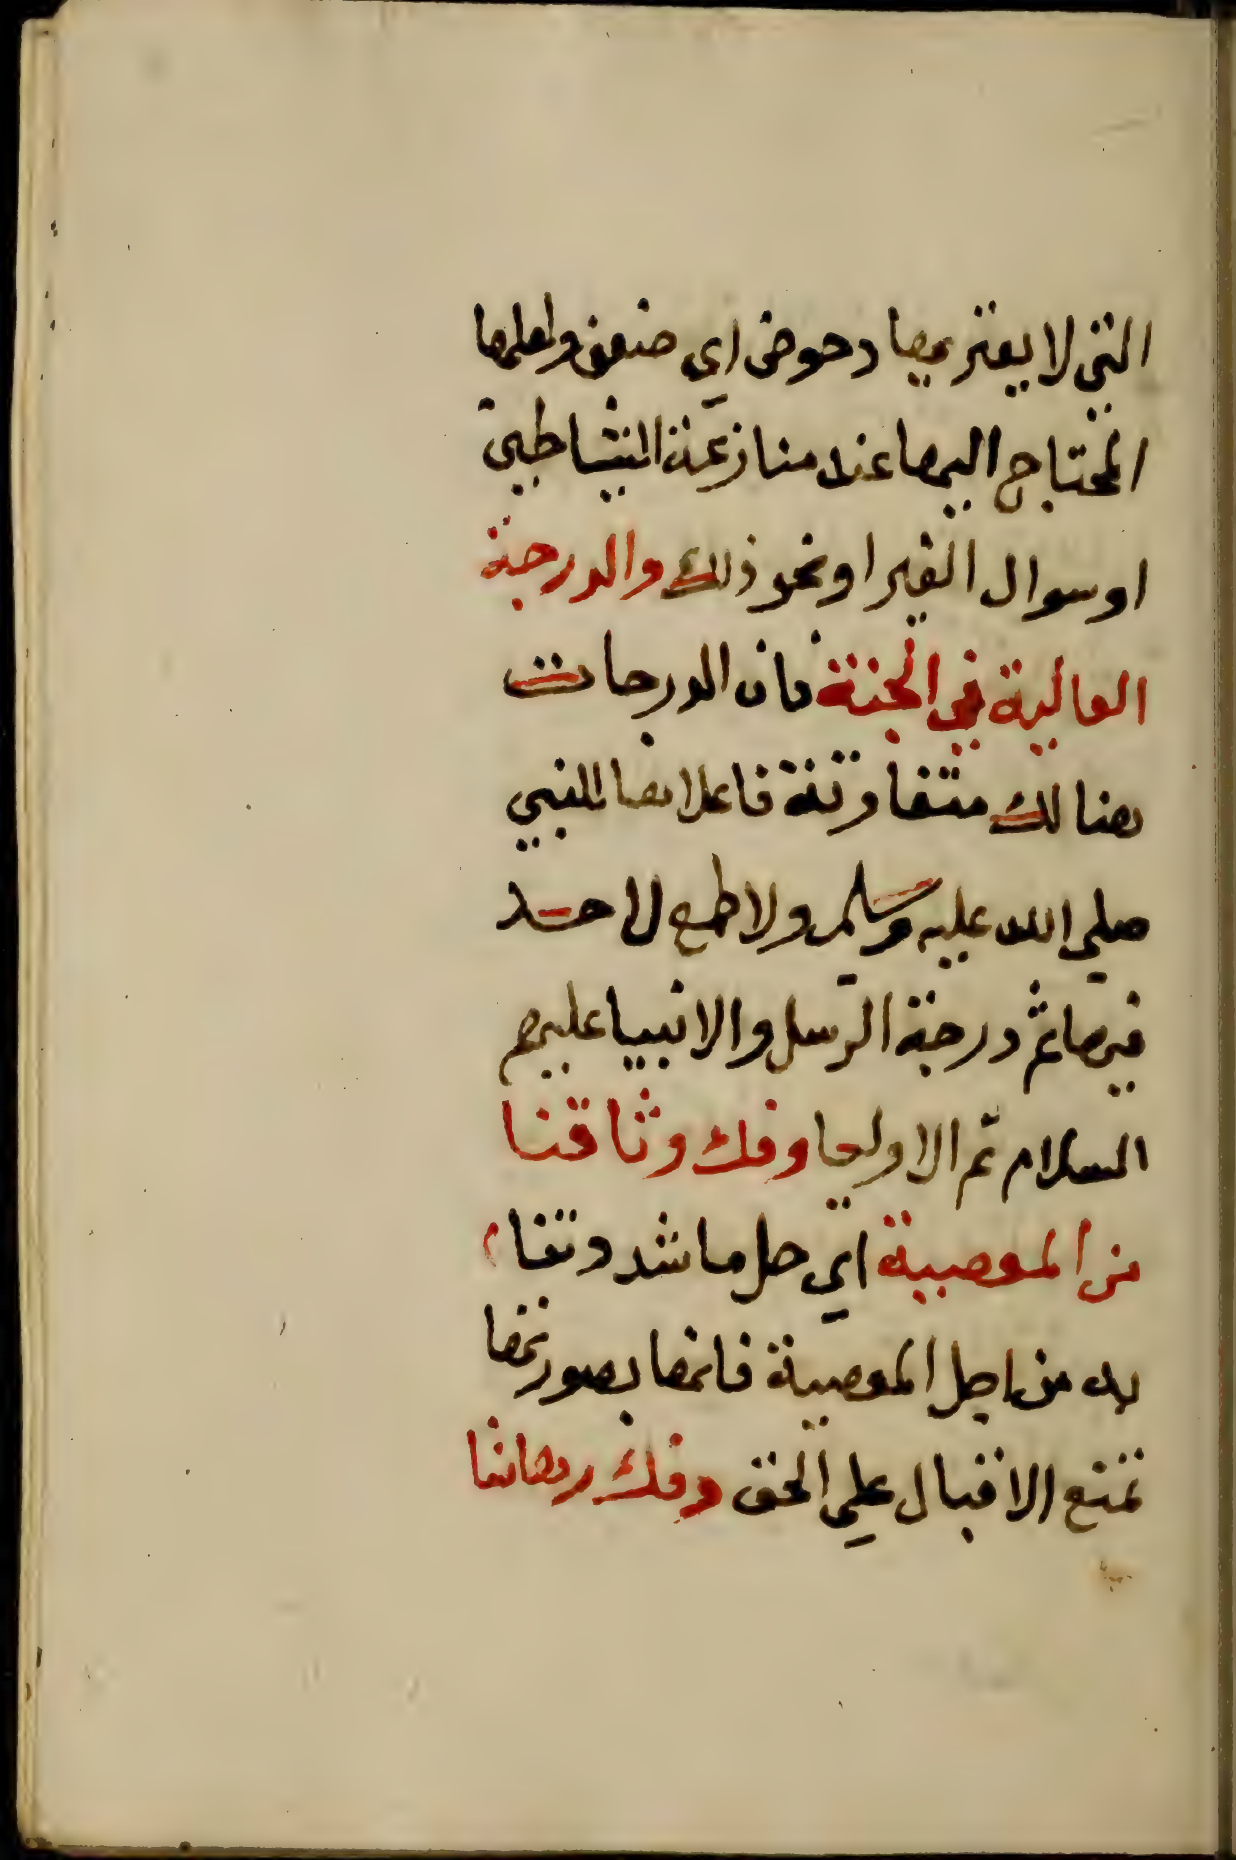 التي لا يعتريها دحوض اي ضعف ولعلها
المحتاج اليها عند منازعة الشياطين
او سوال القبر او نحو ذلك والدرجة
العالية في الجنة فان الدرجات
هنالك متفاوتة فاعلاها للنبي
صلي الله عليه وسلم ولا طمع لاحد
فيها ثم درجة الرسل والانبيا عليهم
السلام ثم الاوليا وفك وثاقنا
من المعصية اي حل ما شد وتقنا
به من اجل المعصية فانها بصورتها
تمنع الاقبال علي الحق وفك رهاننا